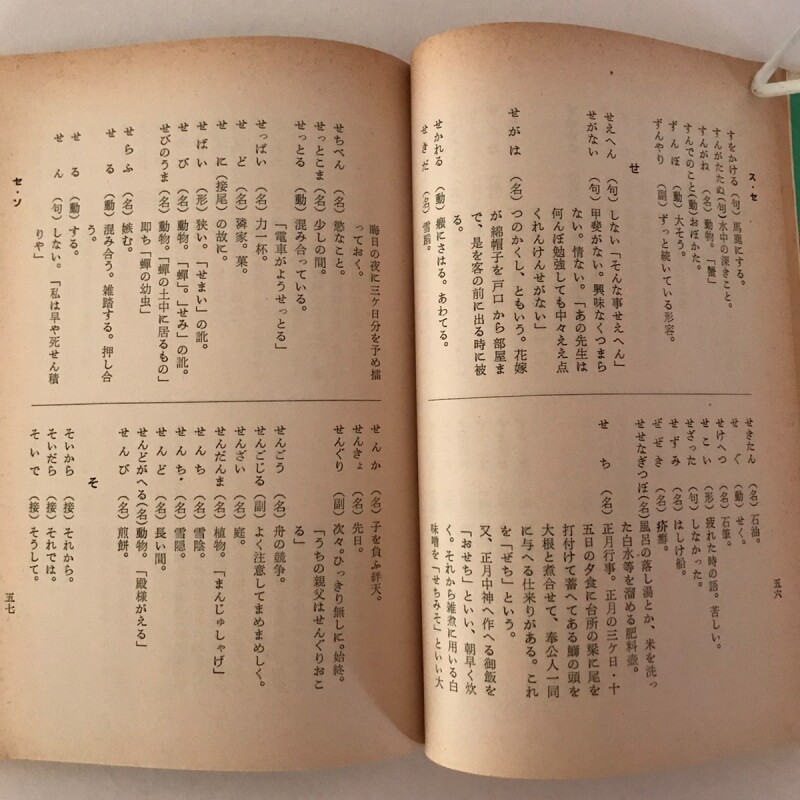 ス・セ
すをかける(句)馬鹿にする。
すんがたたぬ(句)水中の深きこと。
すんがね(名)動物。「蟹」
すんでのこと(動)おぼかた。
ずんぼ(動)大そう。
ずんやり(副)ずっと続いている形容。
せ
せえへん(句)しない「そんな事せえへん」
せがない(句)甲斐がない。興味なくつまら
ない。情ない。「あの先生は
何んぼ勉強しても中々ええ点
くれんけんせがない」
せがは(名)つのかくし、ともいう。花嫁
が綿帽子を戸口から部屋ま
で、是を客の前に出る時に被
る。
せかれる(動)癪にさはる。あわてる。
せきだ(名)雪踏。
せきたん(名)石油。
せく(動)せく。
せけへつ(名)石筆。
せこい(形)疲れた時の語。苦しい。
せざった(句)しなかった。
せずみ(名)はしけ船。
ぜぜき(名)疥癬。
せせなぎつぼ(名)風呂の落し湯とか、米を洗っ
た白水等を溜める肥料壺。
せち(名)正月行事。正月の三ケ日・十
五日の夕食に台所の梁に尾を
打付けて蓄へてある鰤の頭を
大根と煮合せて、奉公人一同
に与へる仕来りがある。これ
を「ぜち」という。
又、正月中神へ作へる御飯を
「おせち」といい、朝早く炊
く。それから雑煮に用いる白
味噌を「せちみそ」といい大
五六
晦日の夜に三ケ日分を予め擂
っておく。
せちべん(名)慾なこと。
せっとこま(名)少しの間。
せっとる(動)混み合っている。
「電車がようせっとる」
せっぱい(名)力一杯。
せど(名)隣家。菓。
せに(接尾)の故に。
せばい(形)狭い。「せまい」の訛。
せび(名)動物。「蟬」。「せみ」の訛。
せびのうま(名)動物。「蟬の土中に居るもの」
即ち「蟬の幼虫」
せらふ(名)嫉む。
せる(動)混み合う。雑踏する。押し合
う。
せる(動)する。
せん(句)しない。「私は早や死せん積
りや」
セ・ソ
せんか(名)子を負ふ絆天。
せんきょ(名)先日。
せんぐり(副)次々。ひっきり無しに。始終。
「うちの親父はせんぐりおこ
る」
せんごう(名)舟の競争。
せんごじる(副)よく注意してまめまめしく。
せんざい(名)庭。
せんだんま(名)植物。「まんじゅしゃげ」
せんち(名)雪陰。
せんち(名)雪隠。
せんど(名)長い間。
せんどがへる(名)動物。「殿様がえる」
せんび(名)煎餅。
そ
そいから(接)それから。
そいだら(接)それでは。
そいで(接)そうして。
五七